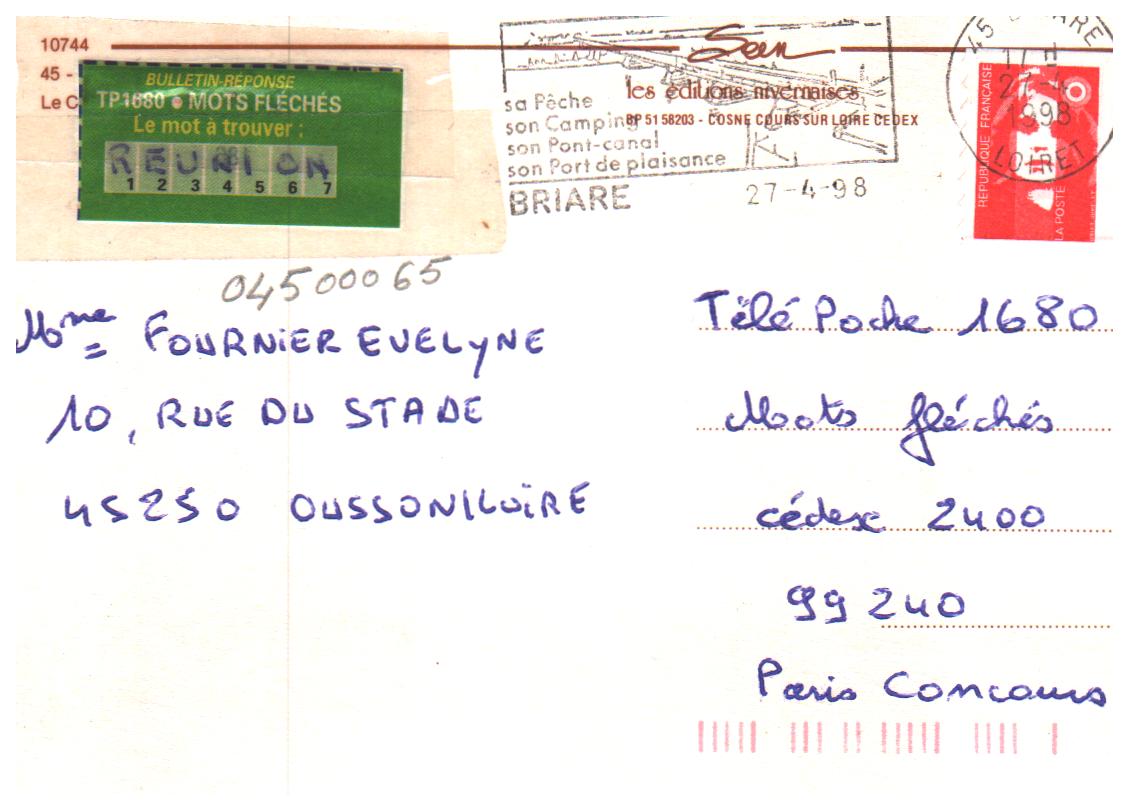 10744
45 -
Le C
BULLETIN-RÉPONSE
TP1680 ● MOTS FLÉCHÉS
Le mot à trouver :
REUNION
1 2 3 4 5 6 7
sa Pêche
son Camping
son Pont-canal
son Port de plaisance
BRIARE
les éditions nivernaises
BP 51 58203 - COSNE COURS SUR LOIRE CEDEX
27-4-98
45
1998
LOIRET
RÉPUBLIQUE FRANÇAISE
LA POSTE
04500065
Mme FOURNIER EVELYNE
10, RUE DU STADE
45250 OUSSON/LOIRE
Télé Poche 1680
Mots fléchés
cédex 2400
99240
Paris Concours